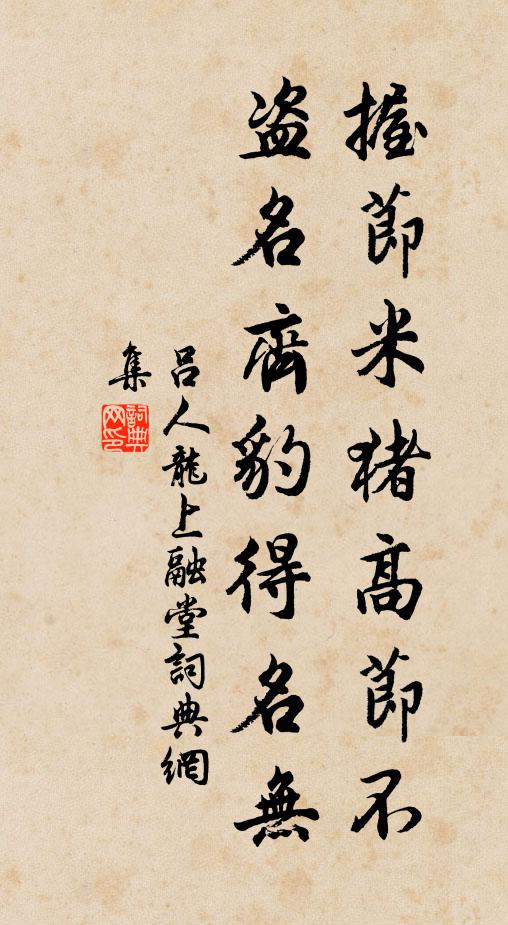 握節米猪高節不
盗名齊豹得名無
吕人龍上融堂詞典網
集
詞典网印